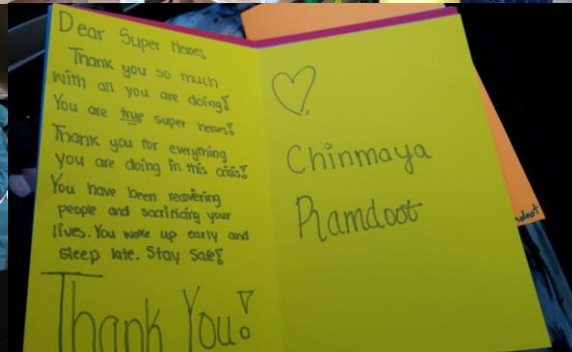 Dear Super Heroes
Thank you so much
with all you are doing!
You are true super heroes!
Thank you for everything
you are doing in this crisis!
You have been recovering
people and sacrificing your
lives. You wake up early and
sleep late. Stay Safe!
Thank You!
Chinmaya
Ramdoot
mdoot